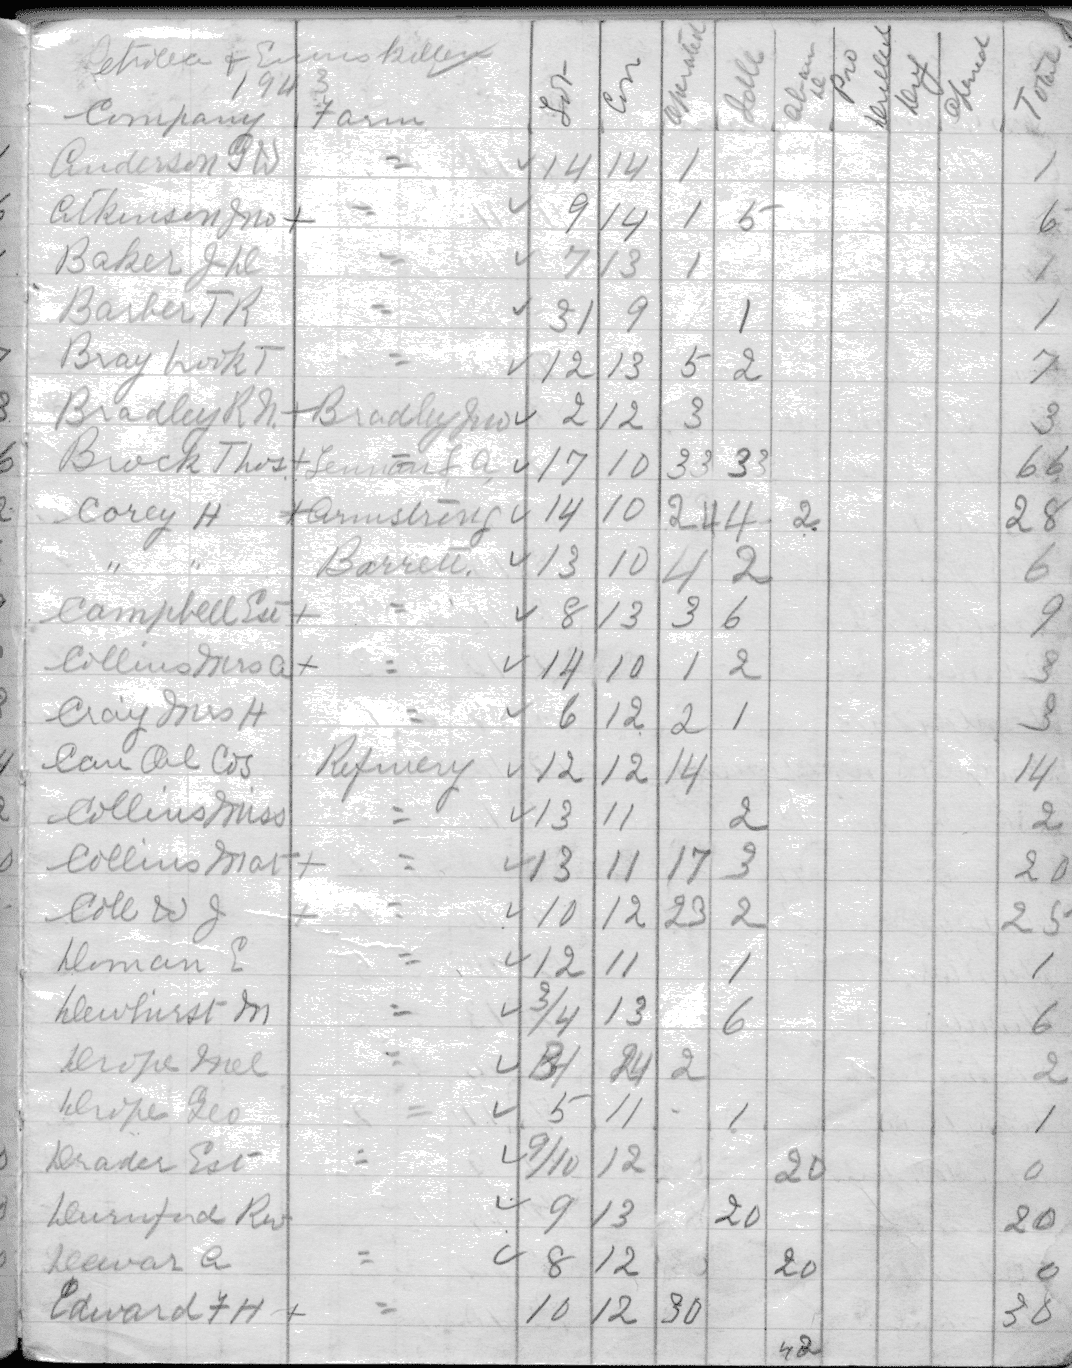 Petrolea & Enniskillen
1943
Company Farm Lot Con operated Idle aban d Pro Drilled Dry opened Total
Anderson G W = ✓ 14 14 1 1
Atkinson Jno + = ✓ 9 14 1 5 6
Baker J H = ✓ 7 13 1 1
Barber T R = ✓ 31 9 1 1
Bray T = ✓ 12 13 5 2 7
Bradley R N. + Bradley Jno ✓ 2 12 3 3
Brock Thos. + ✓ 17 10 33 33 66
Corey H + Armstrong ✓ 14 10 24 4 2 28
" " Barrett. ✓ 13 10 4 2 6
Campbell Est + = ✓ 8 13 3 6 9
Collins Mrs A + = ✓ 14 10 1 2 3
Craig Mrs H = ✓ 6 12 2 1 3
Can Oil Cos Refinery ✓ 12 12 14 14
Collins Miss = ✓ 13 11 2 2
Collins Mat + = ✓ 13 11 17 3 20
Coll W J + = ✓ 10 12 23 2 25
Doman E = ✓ 12 11 1 1
Dewhirst M = ✓ 3/4 13 6 6
Drope Mel = ✓ 2 2
Drope Geo = ✓ 5 11 1 1
Drader Est = ✓ 9/10 12 20 0
Durnford Rev ✓ 9 13 20 20
Dewar A = ✓ 8 12 20 0
Edward F H + = 10 12 30 30
42